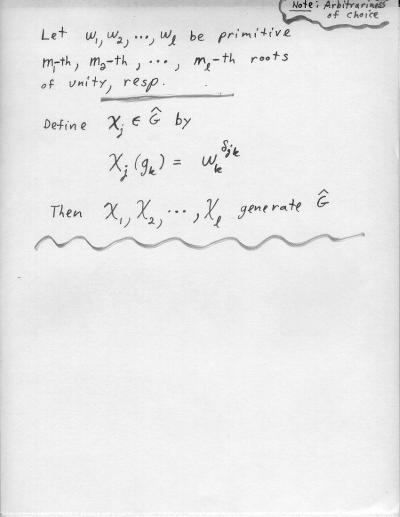 Note: Arbitrariness
of choice
Let ω₁, ω₂, ⋯, ωₗ be primitive
m₁-th, m₂-th, ⋯, mₗ-th roots
of unity, resp.
Define χⱼ ∈ Ĝ by
χⱼ(gₖ) = ωₖ^δⱼₖ
Then χ₁, χ₂, ⋯, χₗ generate Ĝ